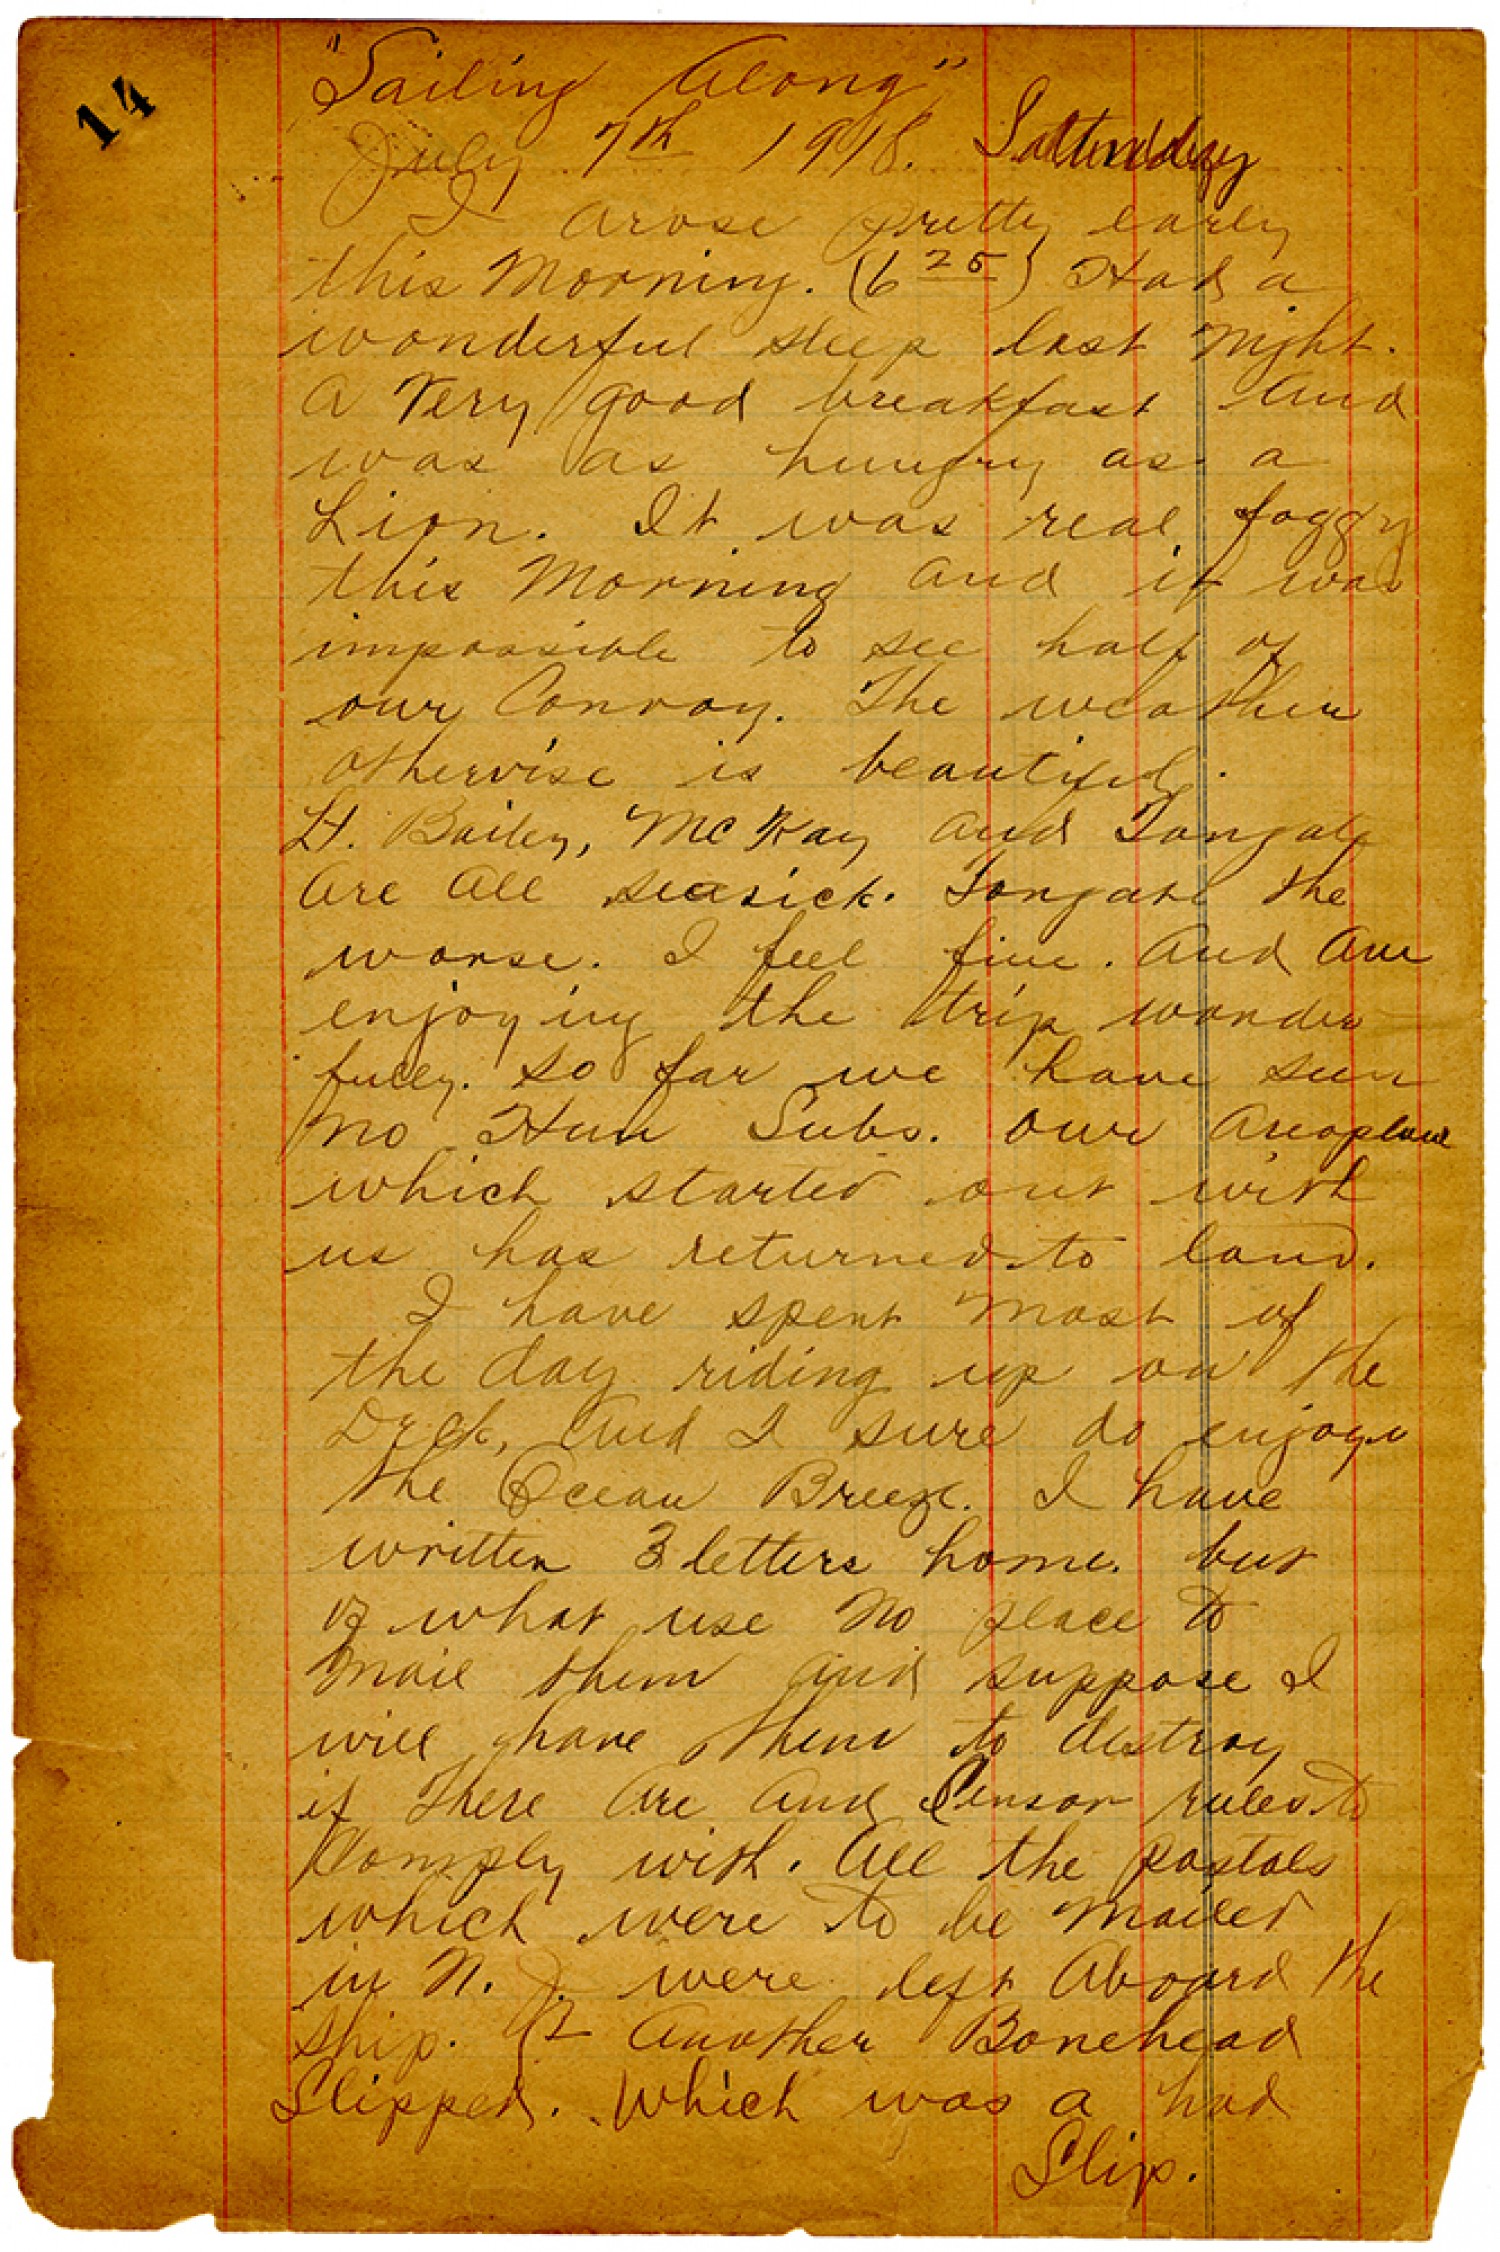 14
"Sailing Along"
July 7th 1918. Satturdday
I arose pretty early
this Morning. (6 25) Had a
wonderful sleep last night.
A Very good breakfast And
was as hungry as a
Lion. It was real foggy
this Morning and it was
impossible to see half of
our Convoy. The weather
otherwise is beautiful.
Lt. Bailey, McKay and Tongate
Are All seasick. Tongate the
worse. I feel fine. And Am
enjoying the trip wonder
fully. So far we have seen
no Hun Subs. our Areoplane
which started out with
us has returned to land.
I have spent most of
the day riding up on the
Deck, And I sure do enjoy
the Ocean Breeze. I have
written 3 letters home. but
of what use no place to
mail them and suppose I
will have them to destroy
if there Are And Censor rules to
Comply with. All the postals
which were to be mailed
in N. J. were left Aboard the
ship. Another Bonehead
Slipped. Which was a bad
Slip.